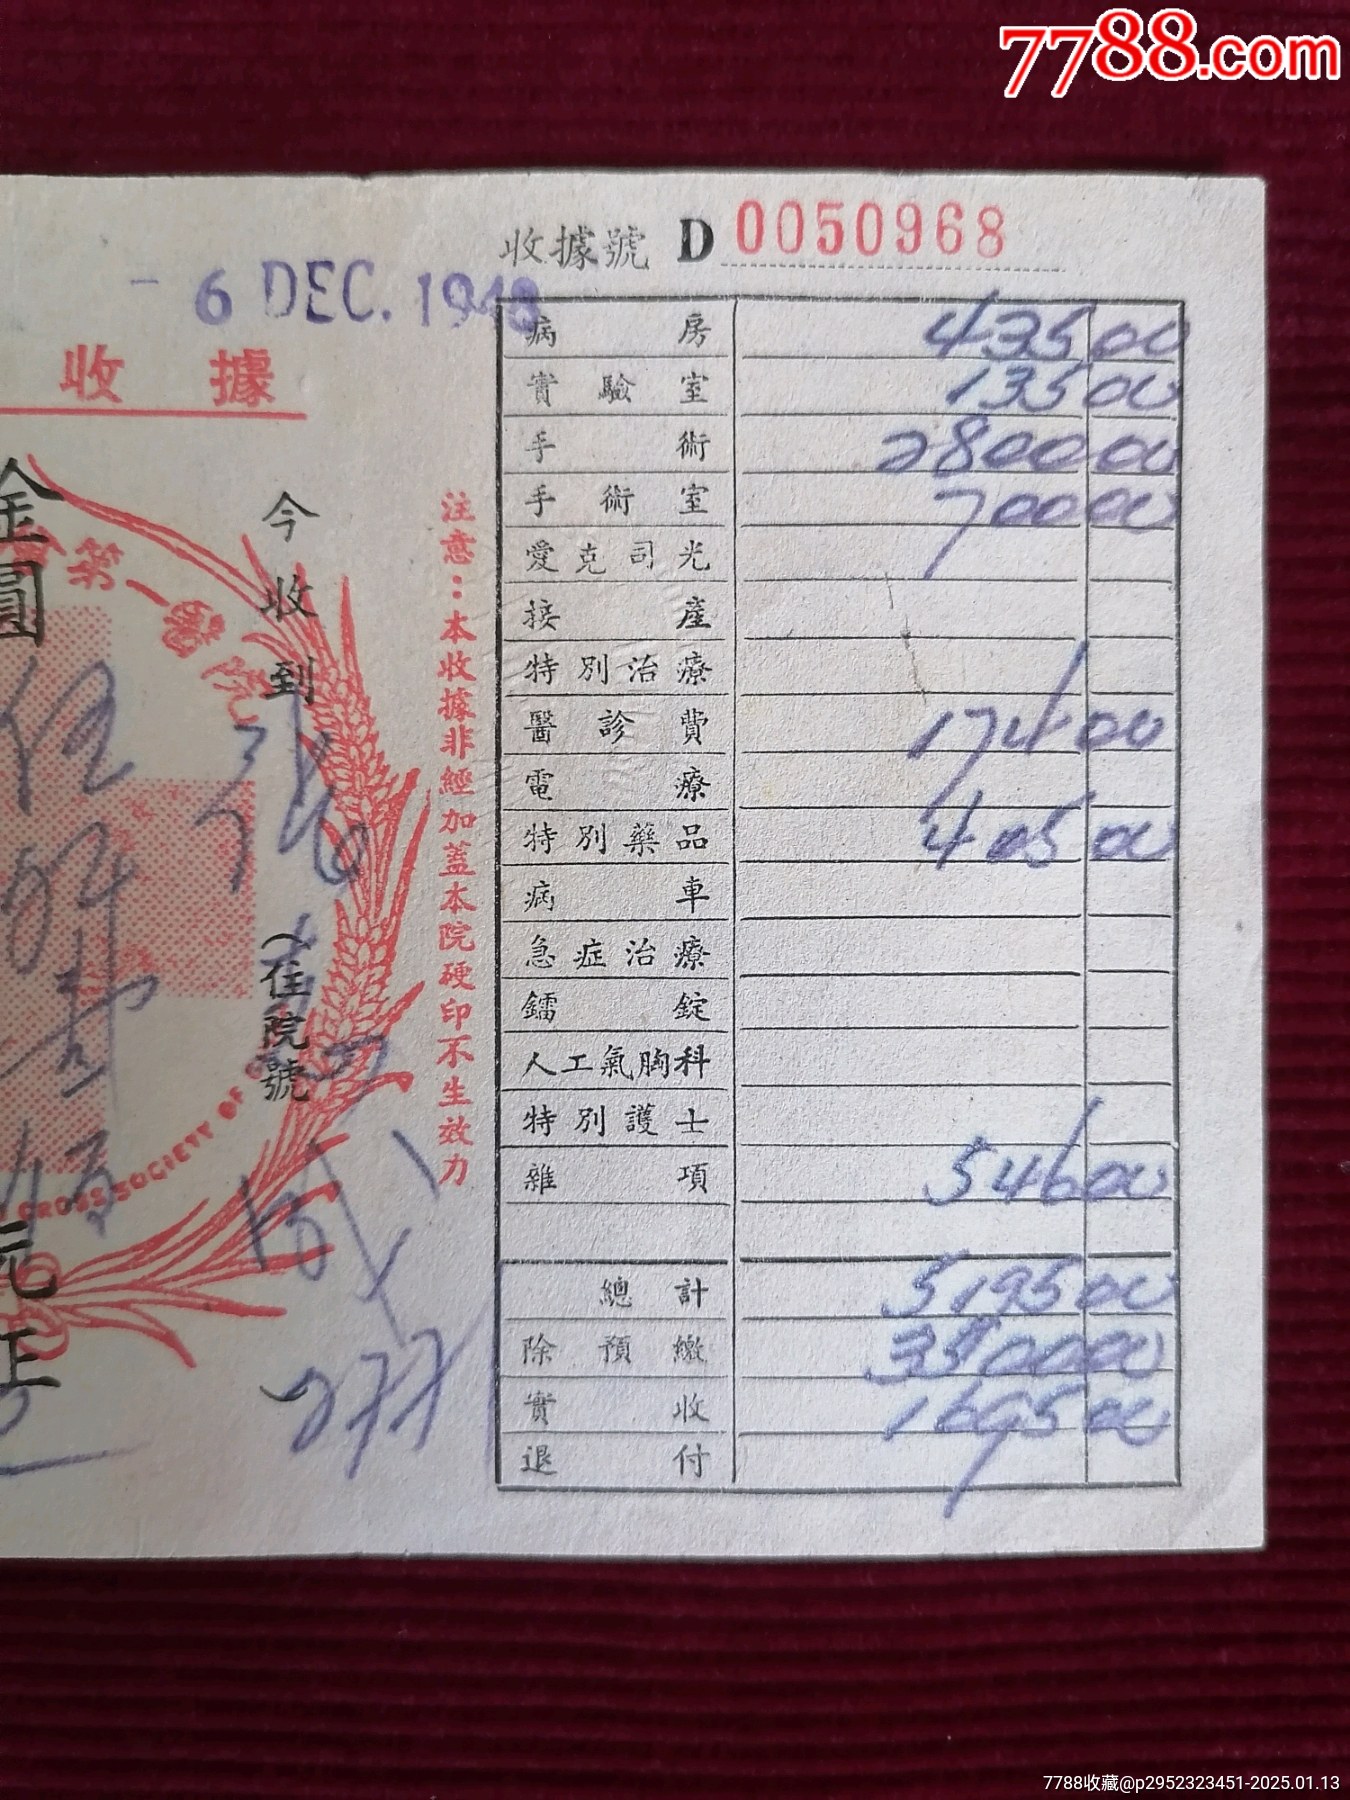 7788.com
收據號 D 0050968
- 6 DEC. 1948
收據
病房 435 00
實驗室 135 00
手術 2800 00
手術室 700 00
愛克司光
接產
特別治療
醫診費 174 00
電療
特別藥品 405 00
病車
急症治療
鐳錠
人工氣胸科
特別護士
雜項 546 00
總計 5195 00
除預繳 3500 00
實收 1695 00
退付
注意：本收據非經加蓋本院硬印不生效力
今收到
（住院號
277
）
第一醫院
CROSS SOCIETY OF
金圓
元正
7788收藏@p2952323451-2025.01.13